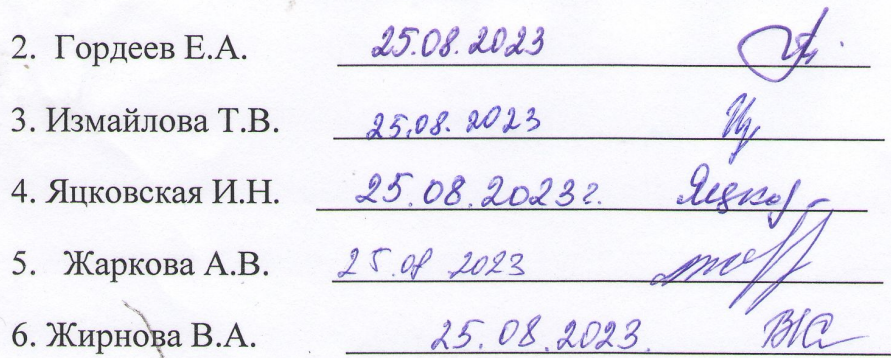 2. Гордеев Е.А. 25.08.2023
3. Измайлова Т.В. 25.08.2023
4. Яцковская И.Н. 25.08.2023г. Яцков
5. Жаркова А.В. 25.08 2023
6. Жирнова В.А. 25.08.2023.